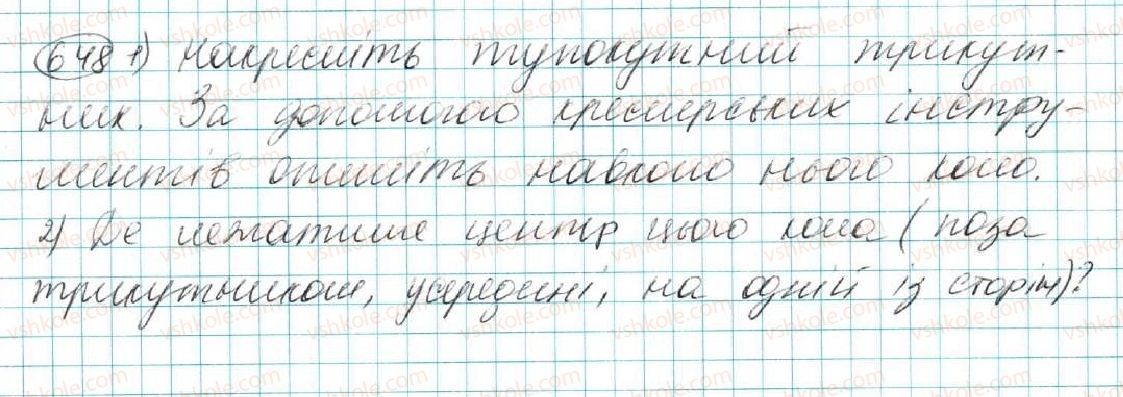 648 1) Накресліть тупокутний трикут-
ник. За допомогою креслярських інстру-
ментів опишіть навколо нього коло.
2) Де лежатиме центр цього кола (поза
трикутником, усередині, на одній із сторін)?